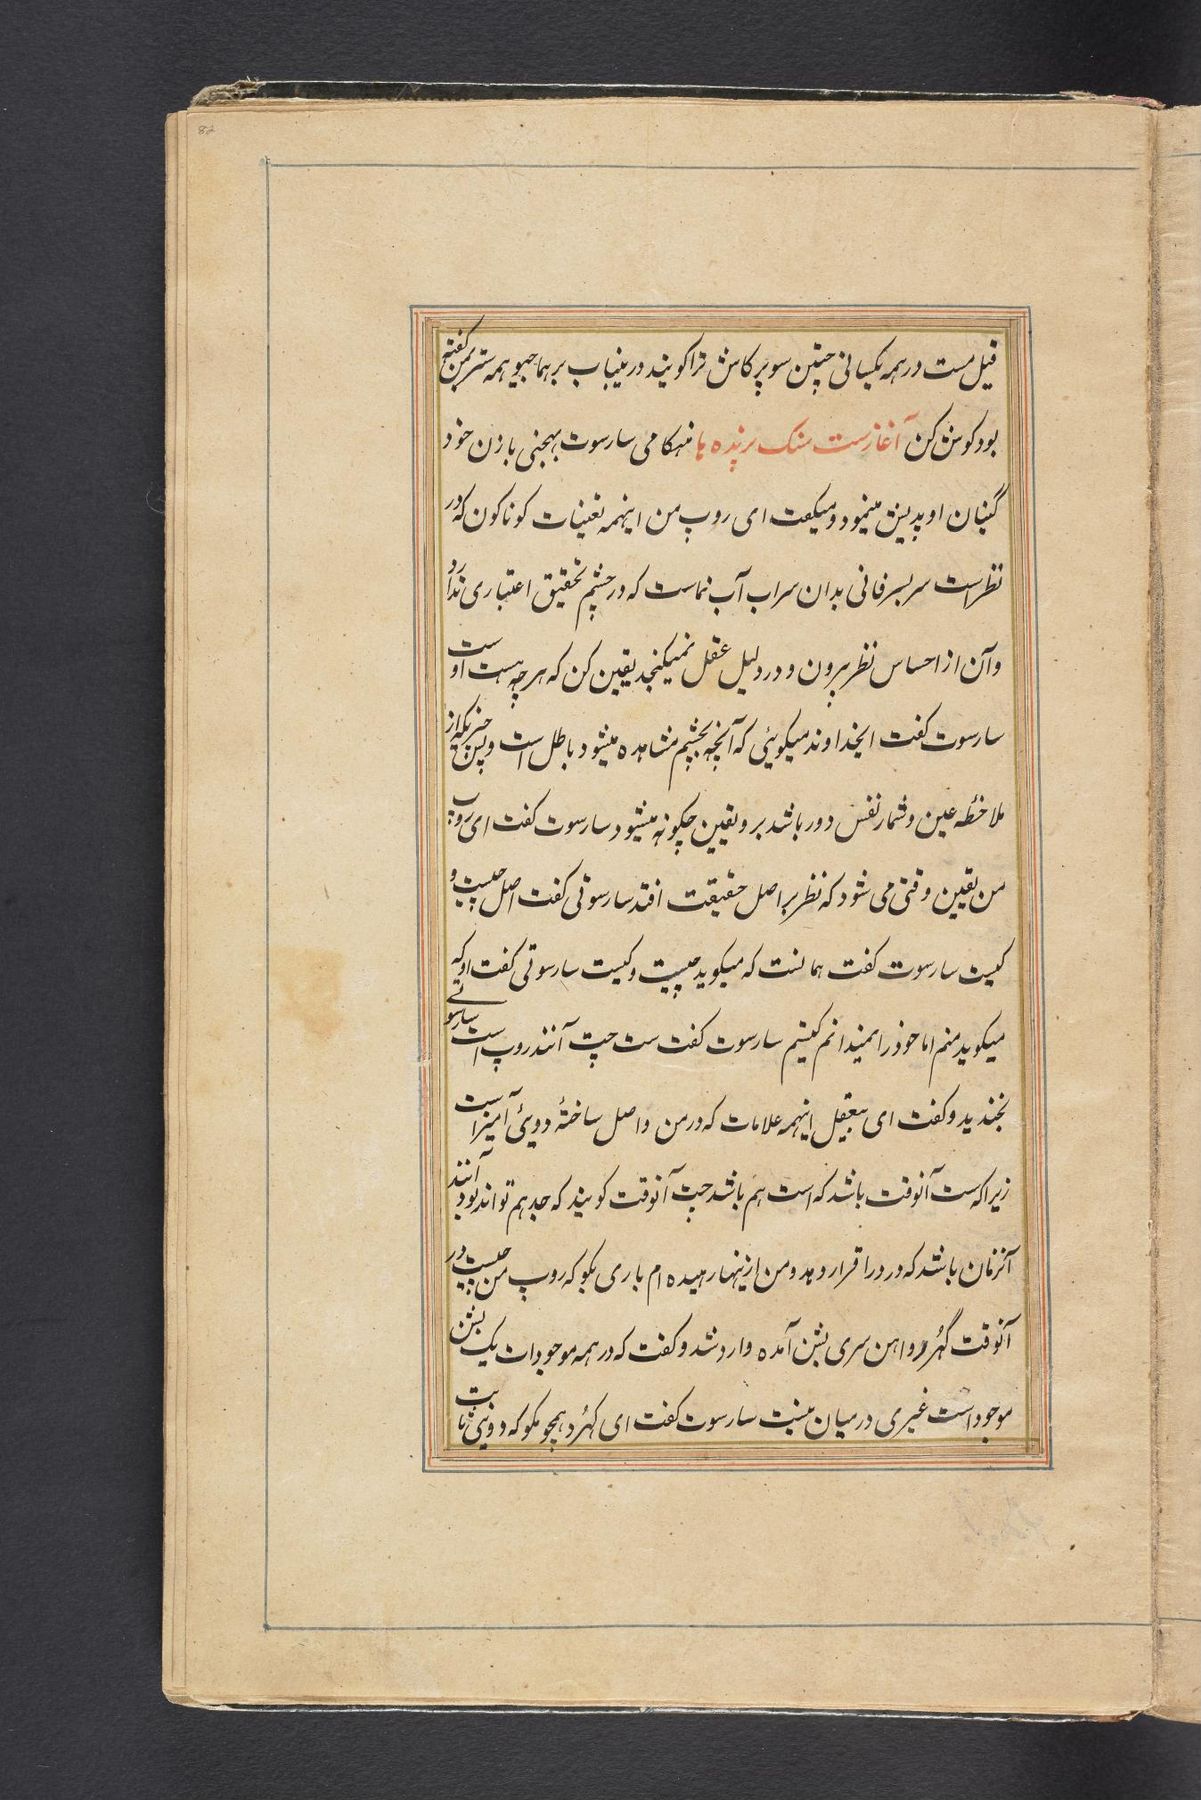 82
فیل مست در همه یکسانی چیتن سوپرکاش ترا کویند درینباب برهما جیو همه ستر بمن کفته
بود کوش کن آغاز ست سنک برنده ها هنکامی سارسوت بهجنی با زن خود
گینان اوپدیش مینمود و میکفت ای روپ من اینهمه تعینات کوناکون که در
نظر است سربسر فانی بدان سراب آب نماست که در چشم تحقیق اعتباری ندارد
و آن از احساس نظر بیرون و در دلیل عقل نمیکنجد یقین کن که هر چه هست اوست
سارسوت کفت ایخداوند میکویئی که آنچه بچشم مشاهده میشود باطل است و پس چیزیکه از
ملاحظه عین و شمار نفس دور باشد بر و یقین چکونه میشود سارسوت کفت ای روپ
من یقین وقتی می شود که نظر بر اصل حقیقت افتد سارسوتی کفت اصل چیست و
کیست سارسوت کفت همانست که میکوید چیست و کیست سارسوتی کفت او که
میکوید منم اما خود را نمیدانم کیستم سارسوت کفت ست چت آنند روپ است سارسوتے
بخندید و کفت ای بیعقل اینهمه علامات که در من و اصل ساختهٔ دویئ آمیز است
زیرا که ست آنوقت باشد که است هم باشد چت آنوقت کویند که جد هم تواند بود آنند
آنزمان باشد که در درا قرار دهد و من ازینها رهیده ام باری بکو که روپ من چیست در
آنوقت گهرُ و واهن سری بشن آمده وارد شد و کفت که در همه موجودات یک بشن
موجود است غیری در میان نیست سارسوت کفت ای گهرُ د همچو مکو که دوئی ثابت